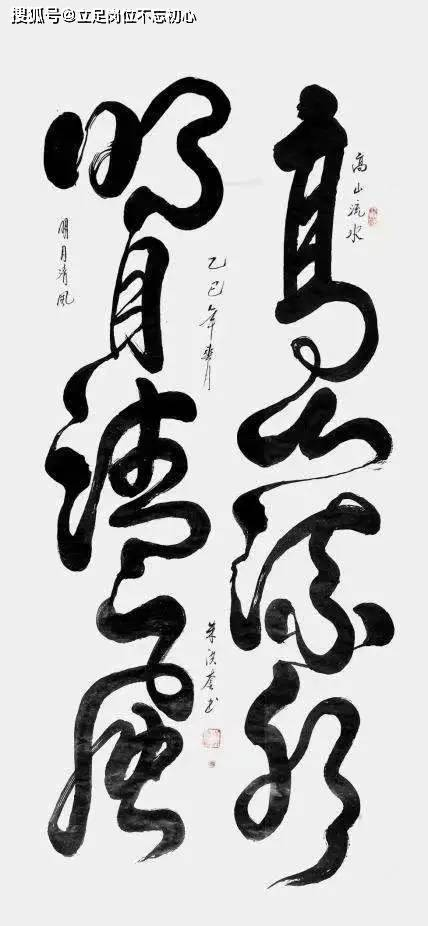 搜狐号@立足岗位不忘初心
高山流水
高山流水
明月清风
明月清风
乙巳年
书